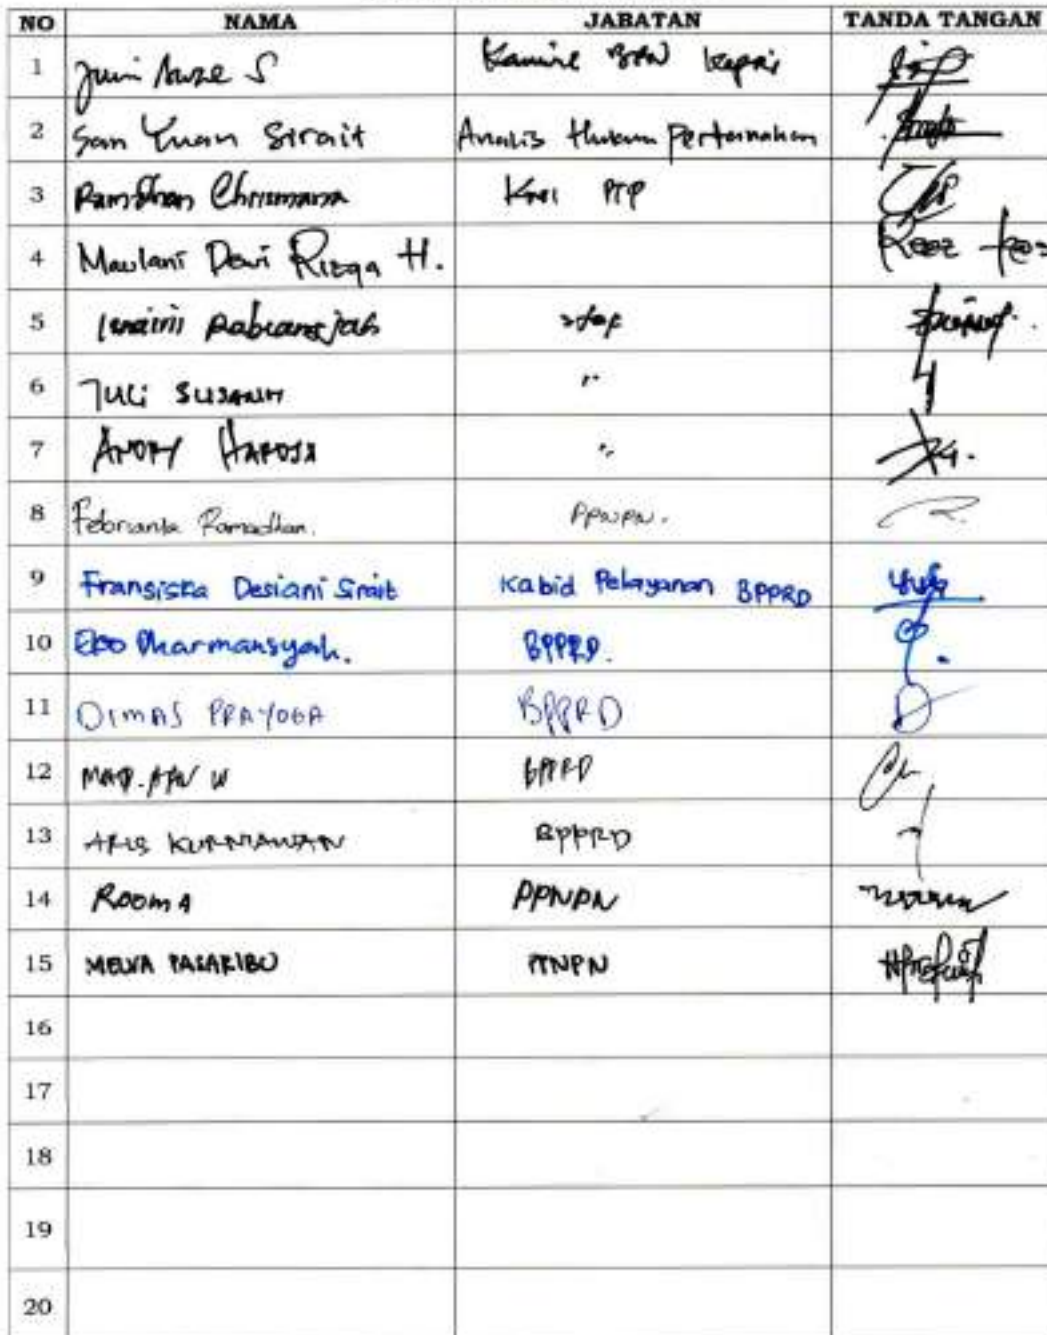 NO NAMA JABATAN TANDA TANGAN
1 S BPN Kepri
2 San Yuan Sirait Analis Hukum Pertanahan
3 Ramdhan Chrismana PTP
4 Maulani Dewi Rizqa H.
5 staf
6 Juli Susanti "
7 "
8 Febrianta Ramadhan. PPNPN.
9 Fransiska Desiani Sirait Kabid Pelayanan BPPRD
10 Eko Dharmansyah. BPPRD.
11 DIMAS PRAYOGA BPPRD
12 BPPRD
13 ARIS KURNIAWAN BPPRD
14 ROOMA PPNPN
15 MELVA PASARIBU PPNPN
16
17
18
19
20